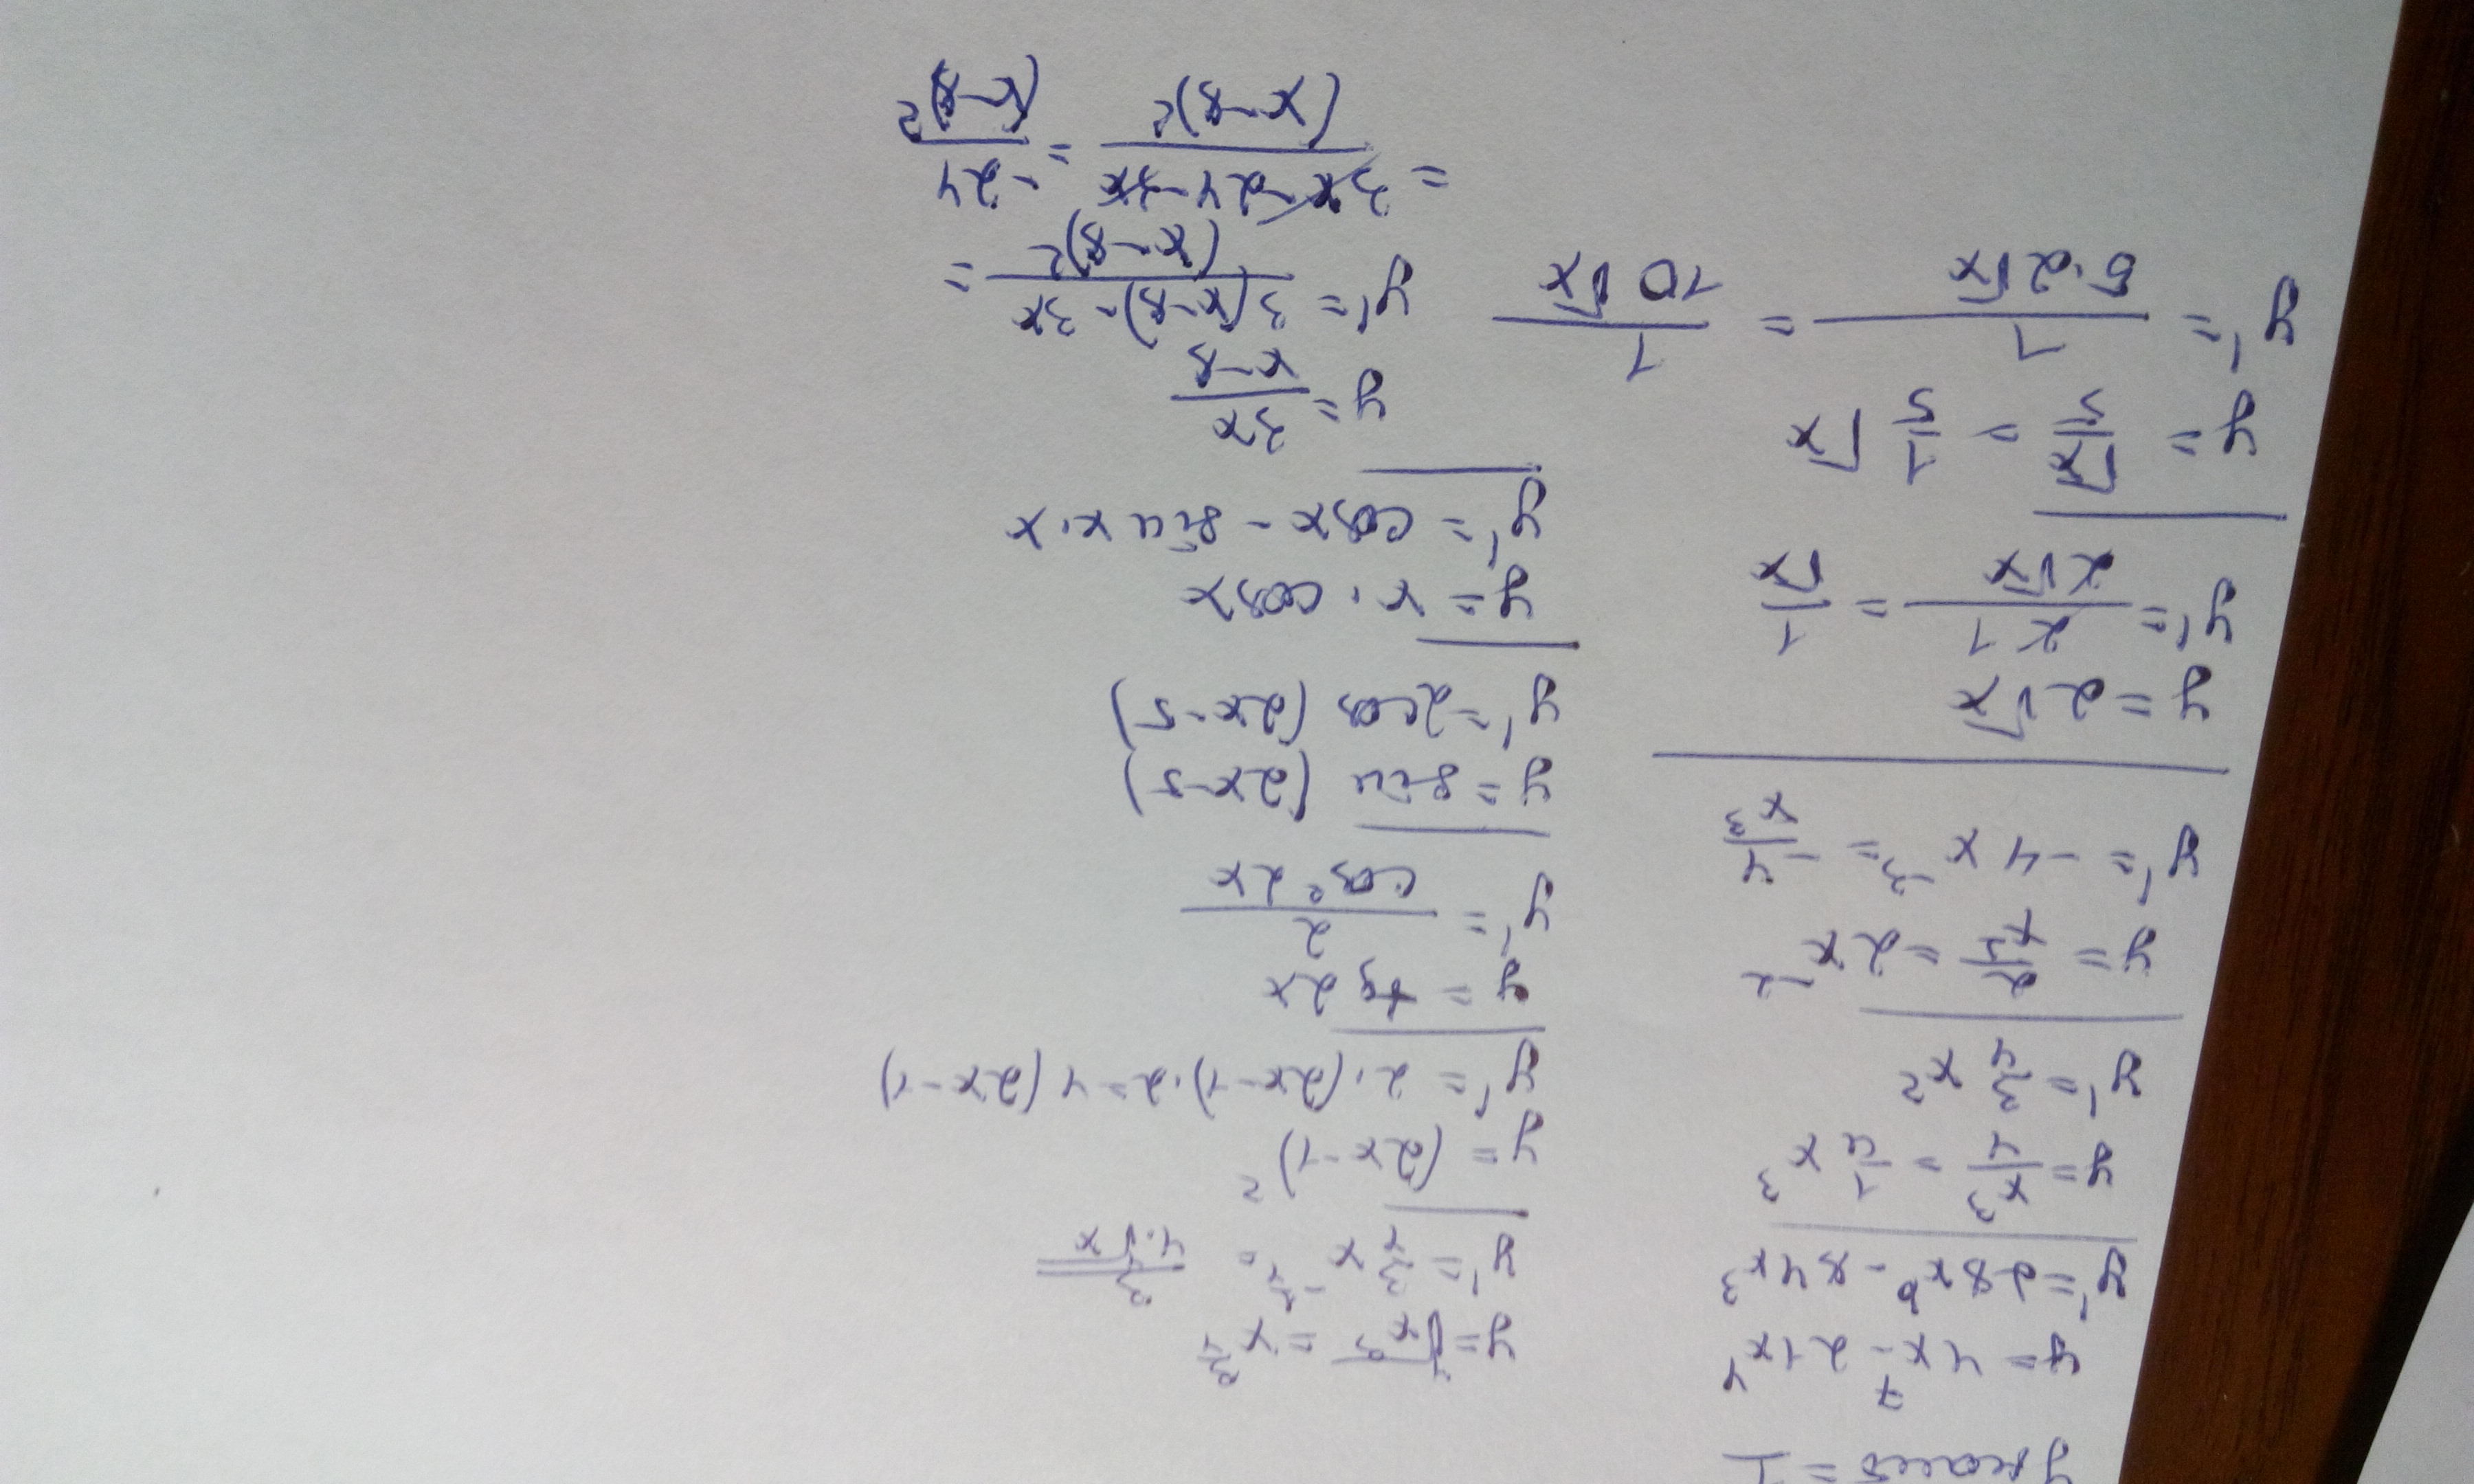 y = 4x⁷ - 21x⁴
y' = 28x⁶ - 84x³
y = x³/4 = 1/4 x³
y' = 3/4 x²
y = 2/x² = 2x⁻²
y' = -4x⁻³ = -4/x³
y = 2√x
y' = 2·1/2√x = 1/√x
y = √x/5 = 1/5 √x
y' = 1/5·2√x = 1/10√x
y = ⁴√x³ = x^3/4
y' = 3/4 x^-1/4 = 3/4·⁴√x
y = (2x-1)²
y' = 2·(2x-1)·2 = 4(2x-1)
y = tg 2x
y' = 2/cos² 2x
y = sin (2x-5)
y' = 2cos (2x-5)
y = x · cosx
y' = cosx - sin x · x
y = 3x/x-8
y' = 3(x-8)-3x/(x-8)² =
= 3x-24-3x/(x-8)² = -24/(x-8)²